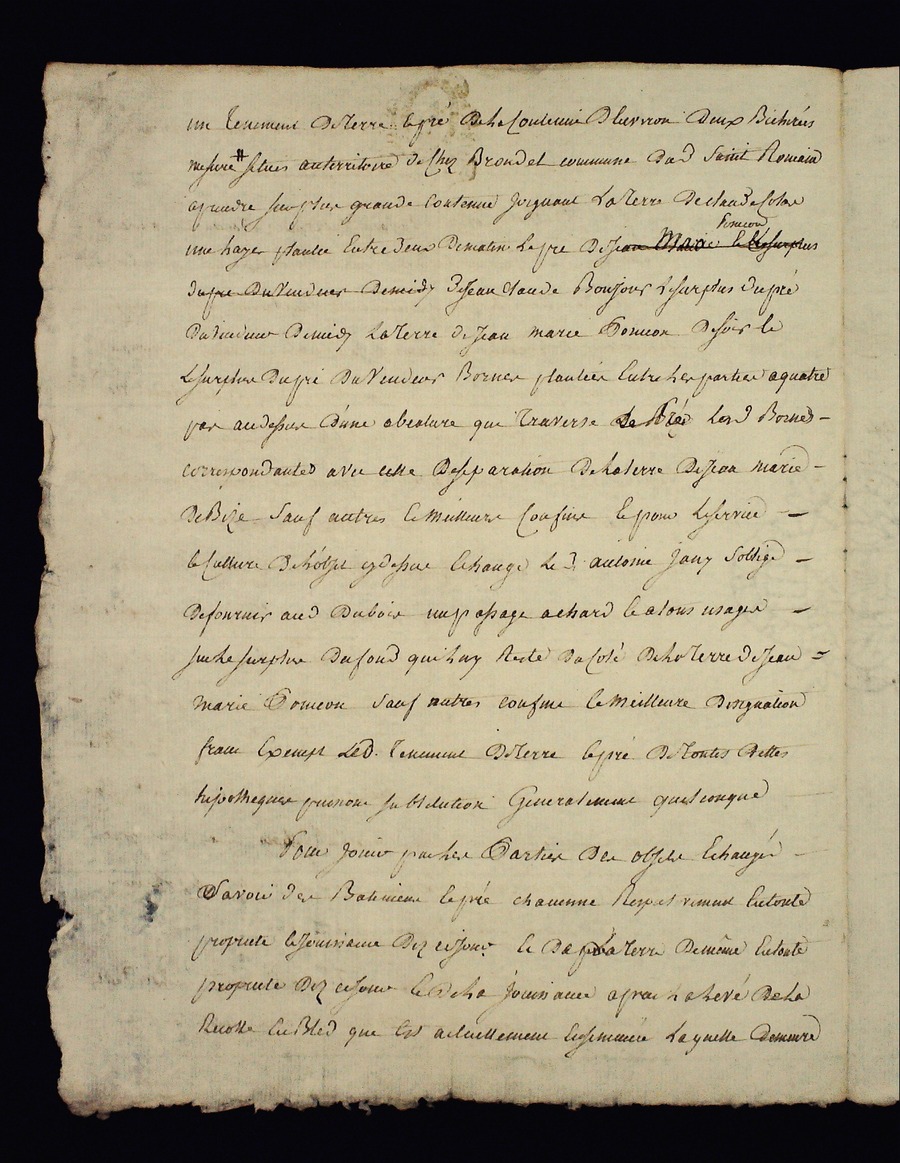 un tenement De Terre et pré De la Contenue D'Environ Deux Bichérés
mesure # situés au territoire de Chez Brondel commune Dud Saint Romain
a prendre sur plus grande Contenue joignant La Terre De claude
une haye plantée Entre Deux De matin Le pré De Jean Marie Ponson et Le surplus
Du pré Du Vendeur De midy De Jean claude Bonjour Le surplus Du pré
Du Vendeur De midy La Terre de Jean marie Poncon De soir le
Le surplus Du pré Du Vendeur Bornes plantées Entre Les parties a quatre
pas au dessus D'une abcature qui Traverse Le Pré Lesd Bornes -
correspondantes avec celle De separation De la terre De Jean marie -
De Bize Sauf autres et Meilleurs Confins et pour Le service -
et Culture De L'objet cy dessus Echangé Le d. antoine Jany S'oblige -
De fournir aud Dubois un passage a chard et a tous usages -
sur Le surplus Du fond qui Luy Reste Du Coté De la Terre De Jean =
marie Poncon Sauf autres confins et Meilleure Designation
franc Exempt Led. Tenement De Terre et pré De Toutes Dettes
hipotheques pensions substitution Generalement quelconque
Pour Jouir par Les Parties Des objets Echangés -
Savoir des Batiments et pré chacunne Respectivement En toute
proprieté et Jouissance Dez ce jour et De La Terre De même En toute
proprieté Dez ce jour et De La Jouissance apres La Levé De La
Recolte En Bled qui Est actuellement Ensemencée Laquelle Demeure